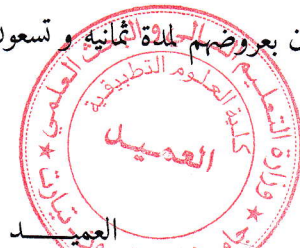 ن بعروضهم لمدة ثمانيه و تسعون
وزارة التعليم العالي و البحث العلمي
كلية العلوم التطبيقية
العميد
تيارت
العميــد